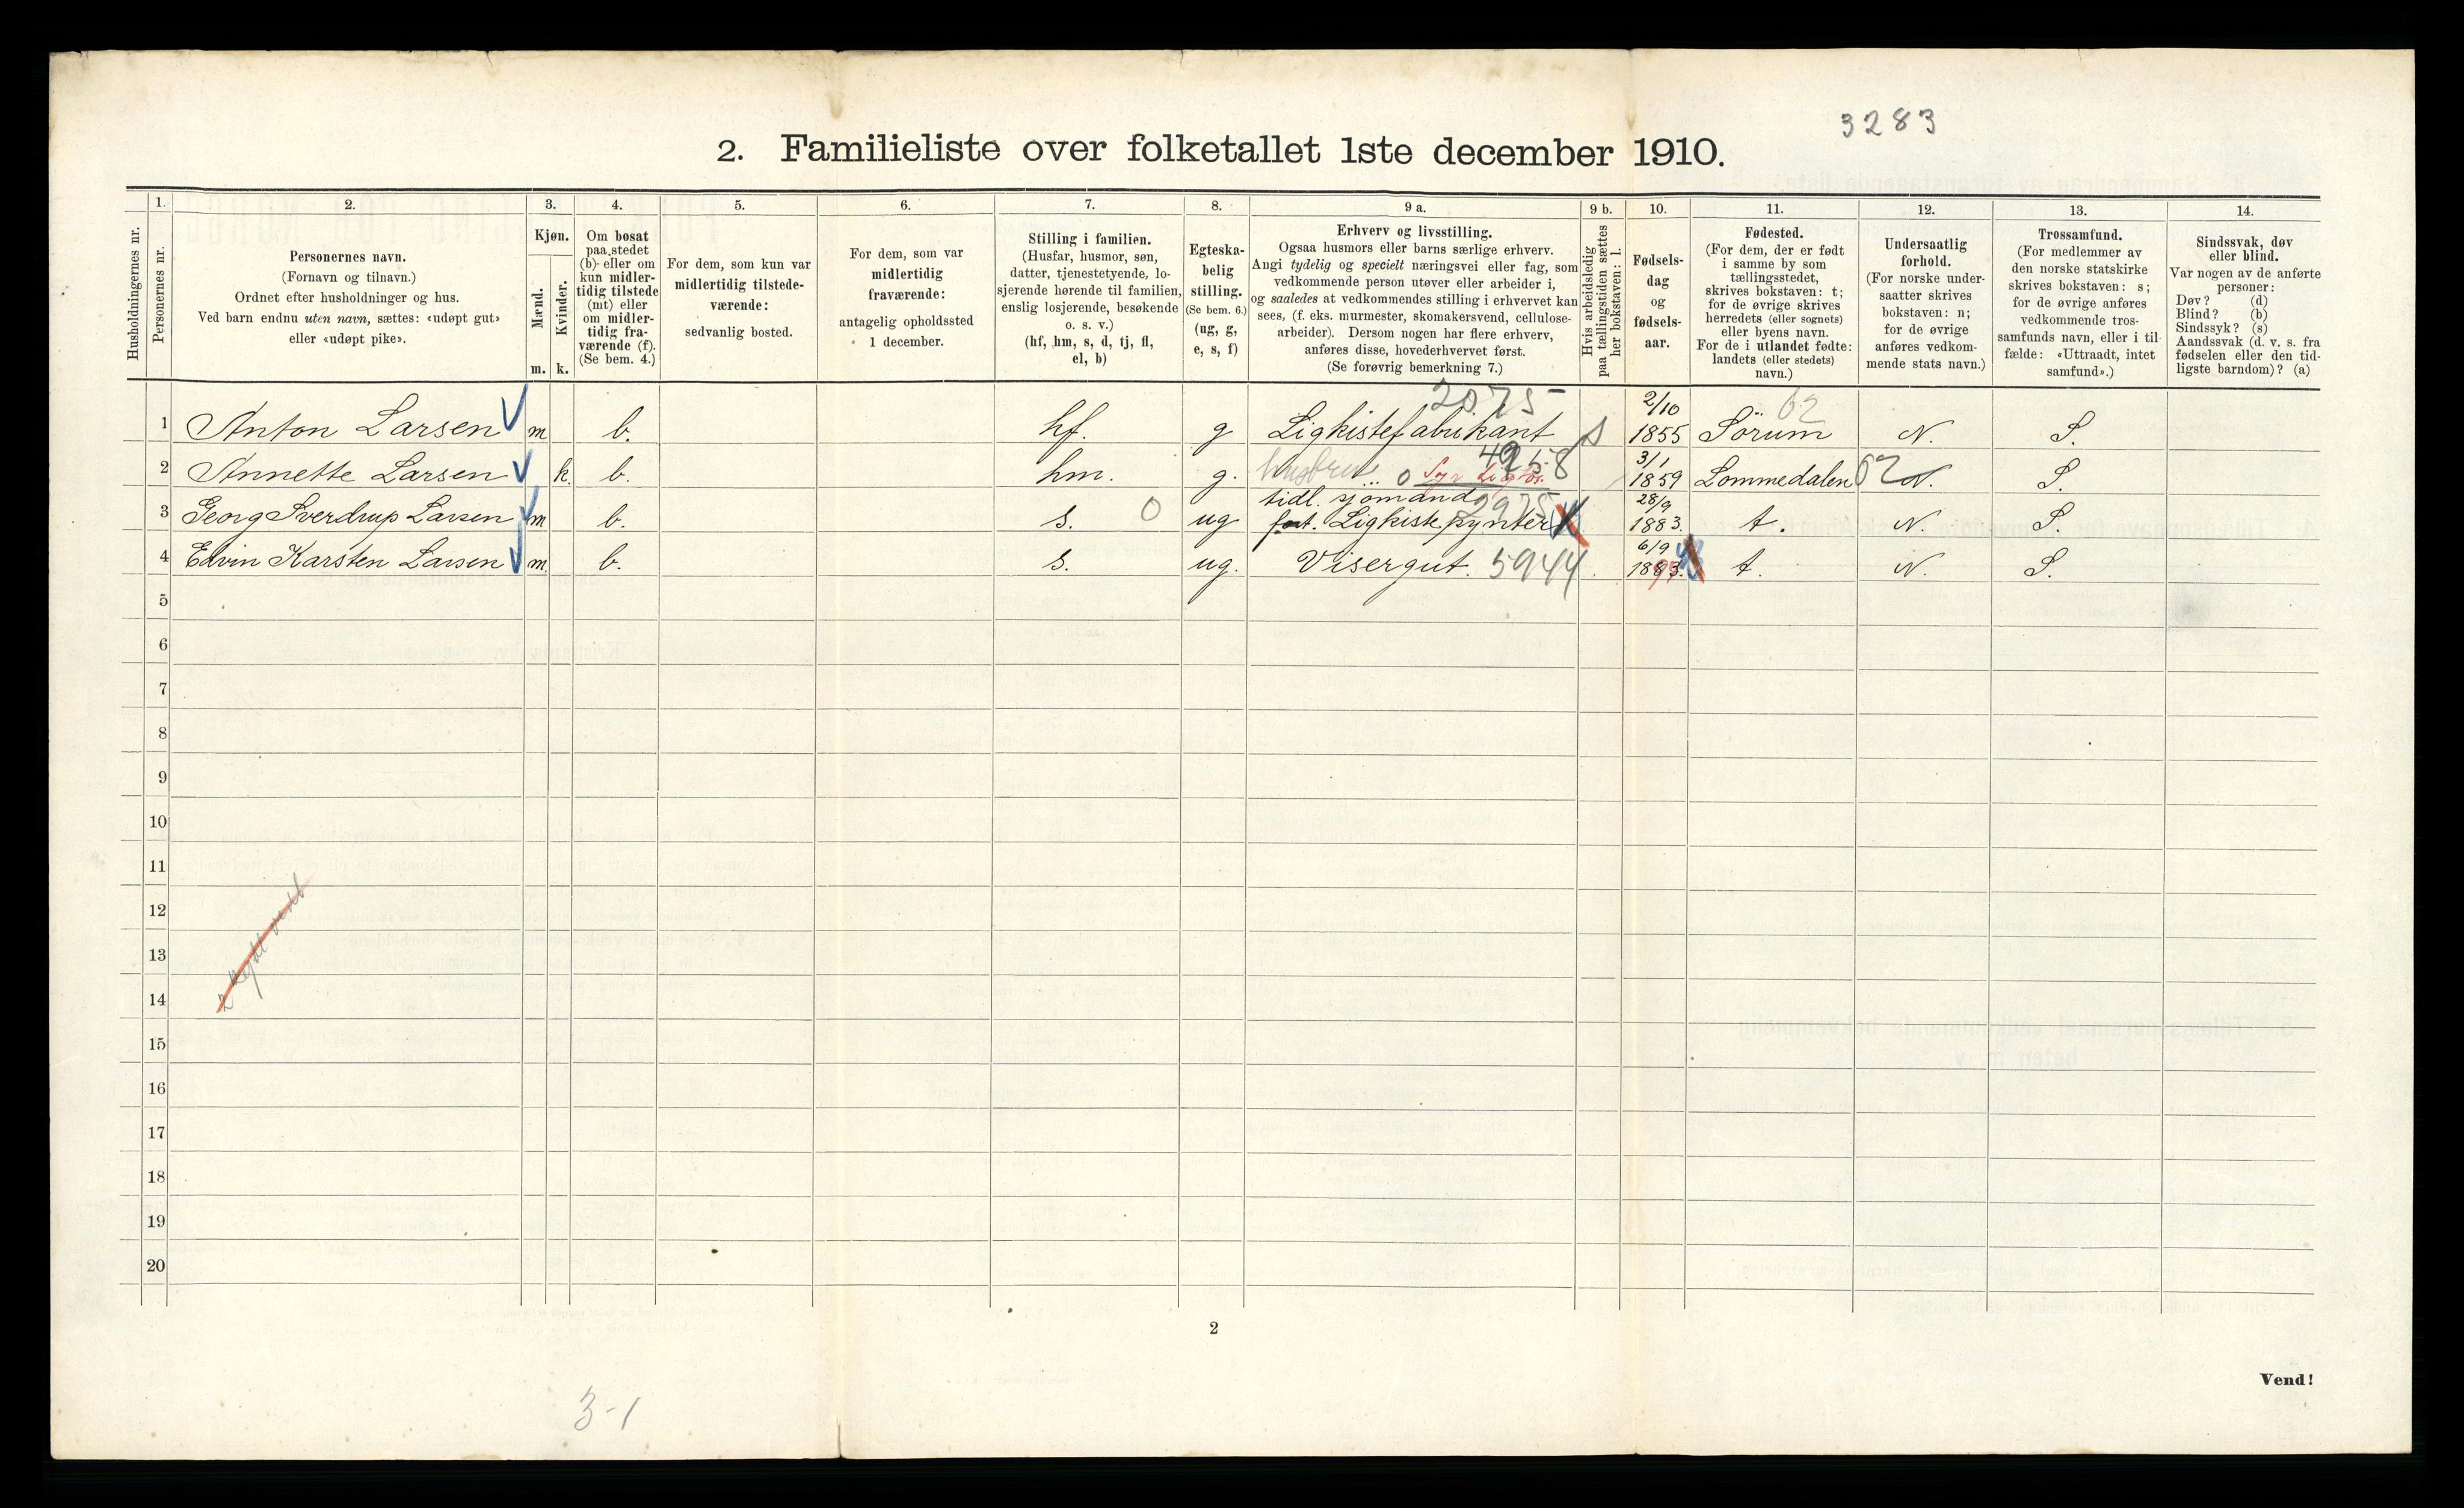 3283
2. Familieliste over folketallet 1ste december 1910.
Husholdningernes nr.
1.
Personernes nr.
2.
Personernes navn.
(Fornavn og tilnavn.)
Ordnet efter husholdninger og hus.
Ved barn endnu uten navn, sættes: «udøpt gut»
eller «udøpt pike».
3.
Kjøn.
Mænd.
Kvinder.
m. k.
4.
Om bosat
paa stedet
(b) eller om
kun midler-
tidig tilstede
(mt) eller
om midler-
tidig fra-
værende (f).
(Se bem. 4.)
5.
For dem, som kun var
midlertidig tilstede-
værende:
sedvanlig bosted.
6.
For dem, som var
midlertidig
fraværende:
antagelig opholdssted
1 december.
7.
Stilling i familien.
(Husfar, husmor, søn,
datter, tjenestetyende, lo-
sjerende hørende til familien,
enslig losjerende, besøkende
o. s. v.)
(hf, hm, s, d, tj, fl,
el, b)
8.
Egteska-
belig
stilling.
(Se bem. 6.)
(ug, g,
e, s, f)
9 a.
Erhverv og livsstilling.
Ogsaa husmors eller barns særlige erhverv.
Angi tydelig og specielt næringsvei eller fag, som
vedkommende person utøver eller arbeider i,
og saaledes at vedkommendes stilling i erhvervet kan
sees, (f. eks. murmester, skomakersvend, cellulose-
arbeider). Dersom nogen har flere erhverv,
anføres disse, hovederhvervet først.
(Se forøvrig bemerkning 7.)
9 b.
Hvis arbeidsledig
paa tællingstiden sættes
her bokstaven: l.
10.
Fødsels-
dag
og
fødsels-
aar.
11.
Fødested.
(For dem, der er født
i samme by som
tællingsstedet,
skrives bokstaven: t;
for de øvrige skrives
herredets (eller sognets)
eller byens navn.
For de i utlandet fødte:
landets (eller stedets)
navn.)
12.
Undersaatlig
forhold.
(For norske under-
saatter skrives
bokstaven: n;
for de øvrige
anføres vedkom-
mende stats navn.)
13.
Trossamfund.
(For medlemmer av
den norske statskirke
skrives bokstaven: s;
for de øvrige anføres
vedkommende tros-
samfunds navn, eller i til-
fælde: «Uttraadt, intet
samfund».)
14.
Sindssvak, døv
eller blind.
Var nogen av de anførte
personer:
Døv? (d)
Blind? (b)
Sindssyk? (s)
Aandssvak (d. v. s. fra
fødselen eller den tid-
ligste barndom)? (a)
2075 2/10 62
1 Anton Larsen m b. hf. g Ligkistefabrikant s 1855 Sörum N. S.
4258 3/1
2 Annette Larsen k. b. hm. g. husbru o 1859 Lommedalen 62 N. S.
tidl. sjömand 2975 28/9
3 Georg Sverdrup Larsen m b. s. 0 ug Ligkistepynter 1883. t. N. S.
6/9
4 Edvin Karsten Larsen m. b. s. ug. Visergut. 5944 1883. t. N. S.
5
6
7
8
9
10
11
12
13
14
15
16
17
18
19
20
2
Vend!
3-1